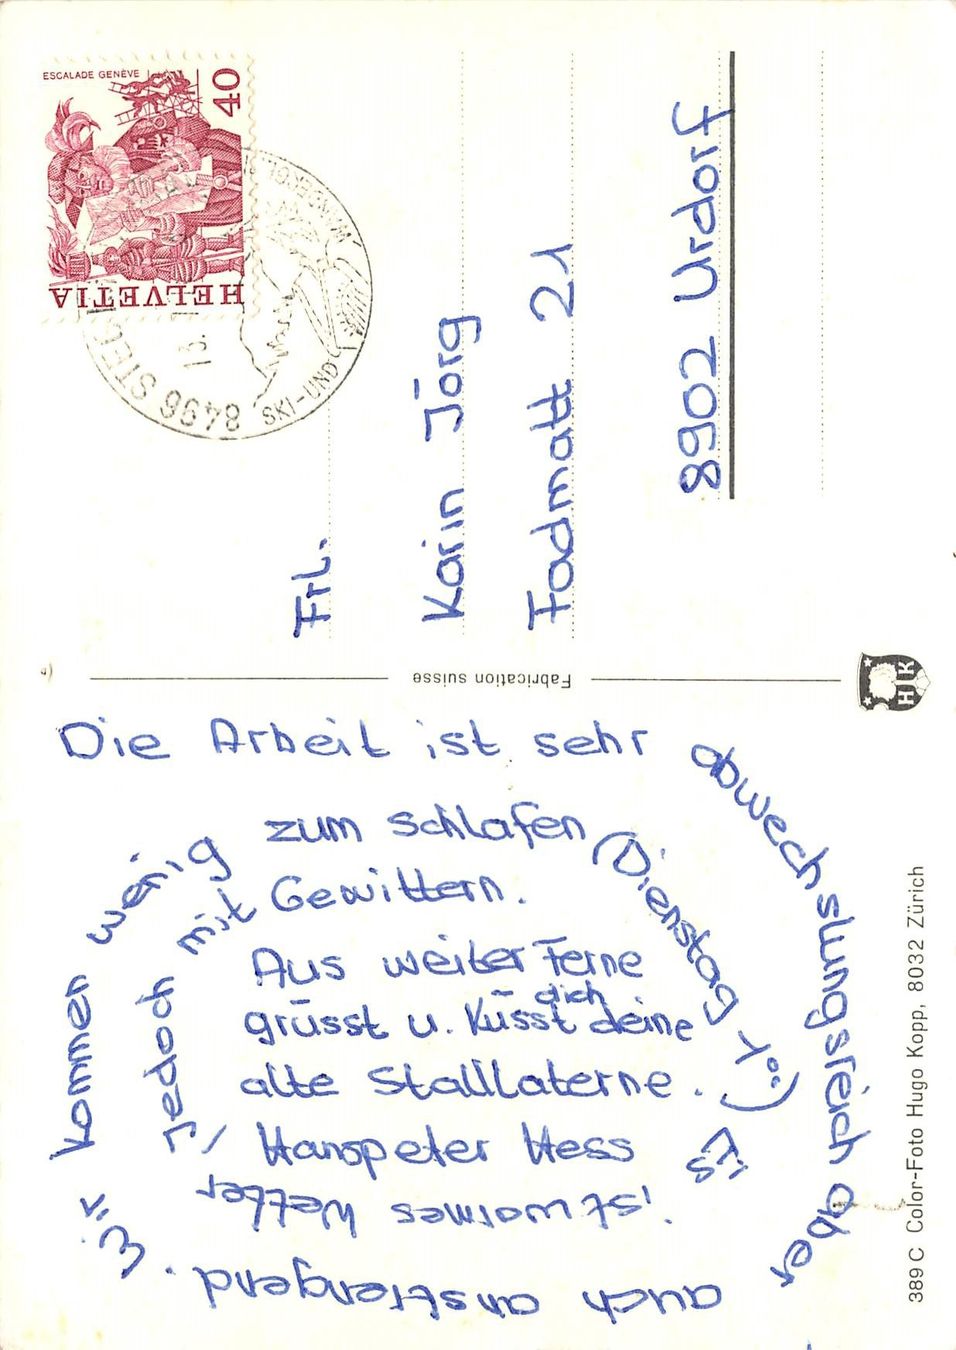 ESCALADE GENÈVE
40
HELVETIA
8496 STEG
13.
SKI-UND
Frl.
Karin Jörg
Fadmatt 21
8902 Urdorf
Fabrication suisse
HK
Die Arbeit ist sehr
abwechslungsreich aber
auch anstrengend.
Wir kommen wenig
zum schlafen
(Dienstag 1°°)
Es
ist warmes Wetter
, jedoch mit
Gewittern.
Aus weiter Ferne
grüsst u. küsst dich deine
alte Stalllaterne.
Hanspeter Hess
389 C Color-Foto Hugo Kopp, 8032 Zürich